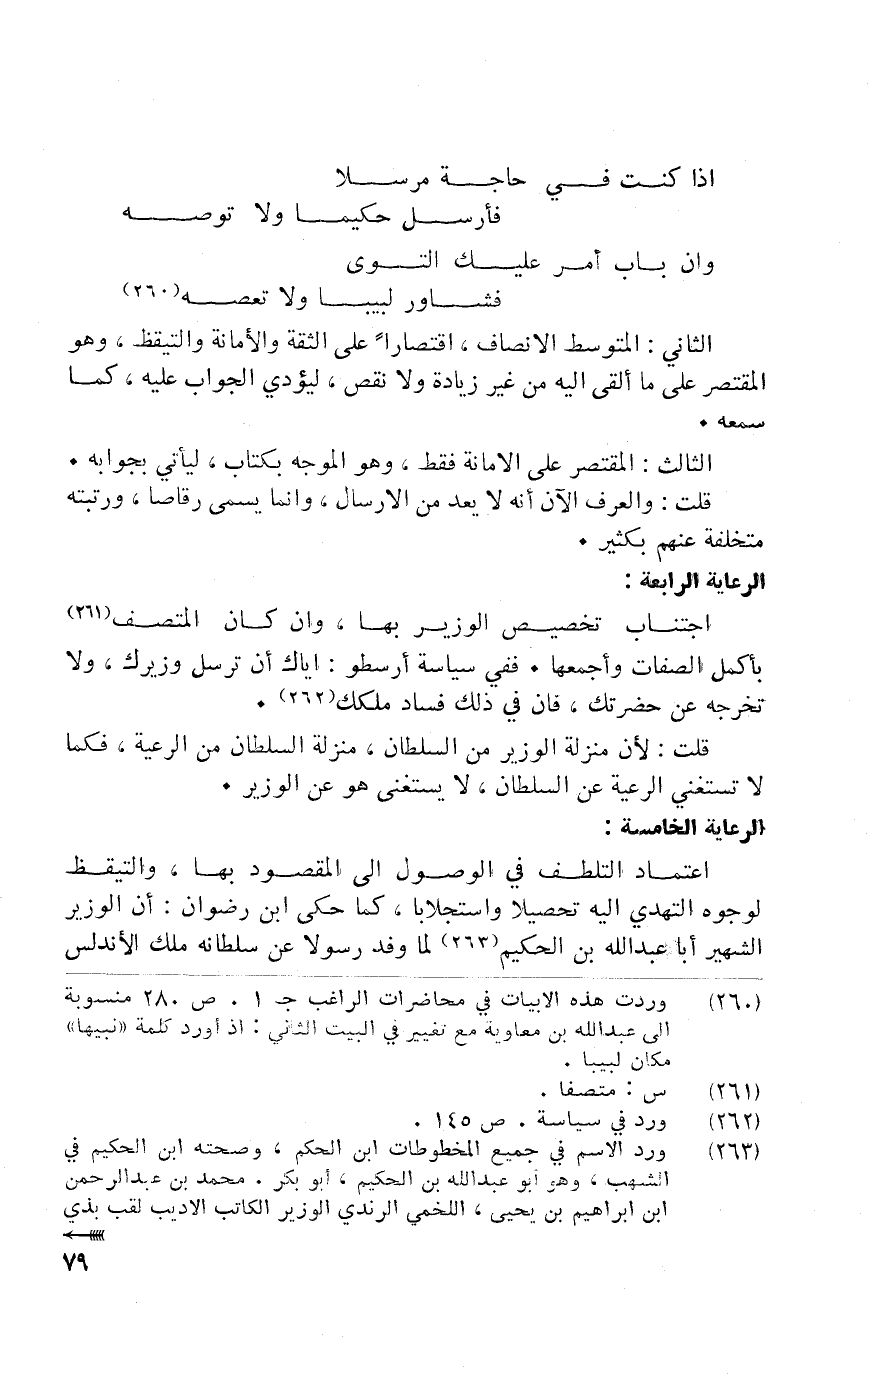 اذا كنت في حاجة مرسلا
فأرسل حكيما ولا توصه
وان باب أمر عليك التوى
فشاور لبيبا ولا تعصه(٢٦٠)
الثاني : المتوسط الانصاف ، اقتصاراً على الثقة والأمانة والتيقظ ، وهو
المقتصر على ما ألقى اليه من غير زيادة ولا نقص ، ليؤدي الجواب عليه ، كما
سمعه .
الثالث : المقتصر على الامانة فقط ، وهو الموجه بكتاب ، ليأتي بجوابه .
قلت : والعرف الآن أنه لا يعد من الارسال ، وانما يسمى رقاصا ، ورتبته
متخلفة عنهم بكثير .
الرعاية الرابعة :
اجتناب تخصيص الوزير بها ، وان كان المتصف(٢٦١)
بأكمل الصفات وأجمعها . ففي سياسة أرسطو : اياك أن ترسل وزيرك ، ولا
تخرجه عن حضرتك ، فان في ذلك فساد ملكك(٢٦٢) .
قلت : لأن منزلة الوزير من السلطان ، منزلة السلطان من الرعية ، فكما
لا تستغني الرعية عن السلطان ، لا يستغنى هو عن الوزير .
الرعاية الخامسة :
اعتماد التلطف في الوصول الى المقصود بها ، والتيقظ
لوجوه التهدي اليه تحصيلا واستجلابا ، كما حكى ابن رضوان : أن الوزير
الشهير أبا عبدالله بن الحكيم(٢٦٣) لما وفد رسولا عن سلطانه ملك الأندلس
(٢٦٠) وردت هذه الابيات في محاضرات الراغب جـ ١ . ص ٢٨٠ منسوبة
الى عبدالله بن معاوية مع تغيير في البيت الثاني : اذ أورد كلمة «نبيها»
مكان لبيبا .
(٢٦١) س : متصفا .
(٢٦٢) ورد في سياسة . ص ١٤٥ .
(٢٦٣) ورد الاسم في جميع المخطوطات ابن الحكم ، وصحته ابن الحكيم في
الشهب ، وهو أبو عبدالله بن الحكيم ، أبو بكر . محمد بن عبدالرحمن
ابن ابراهيم بن يحيى ، اللخمي الرندي الوزير الكاتب الاديب لقب بذي
٧٩